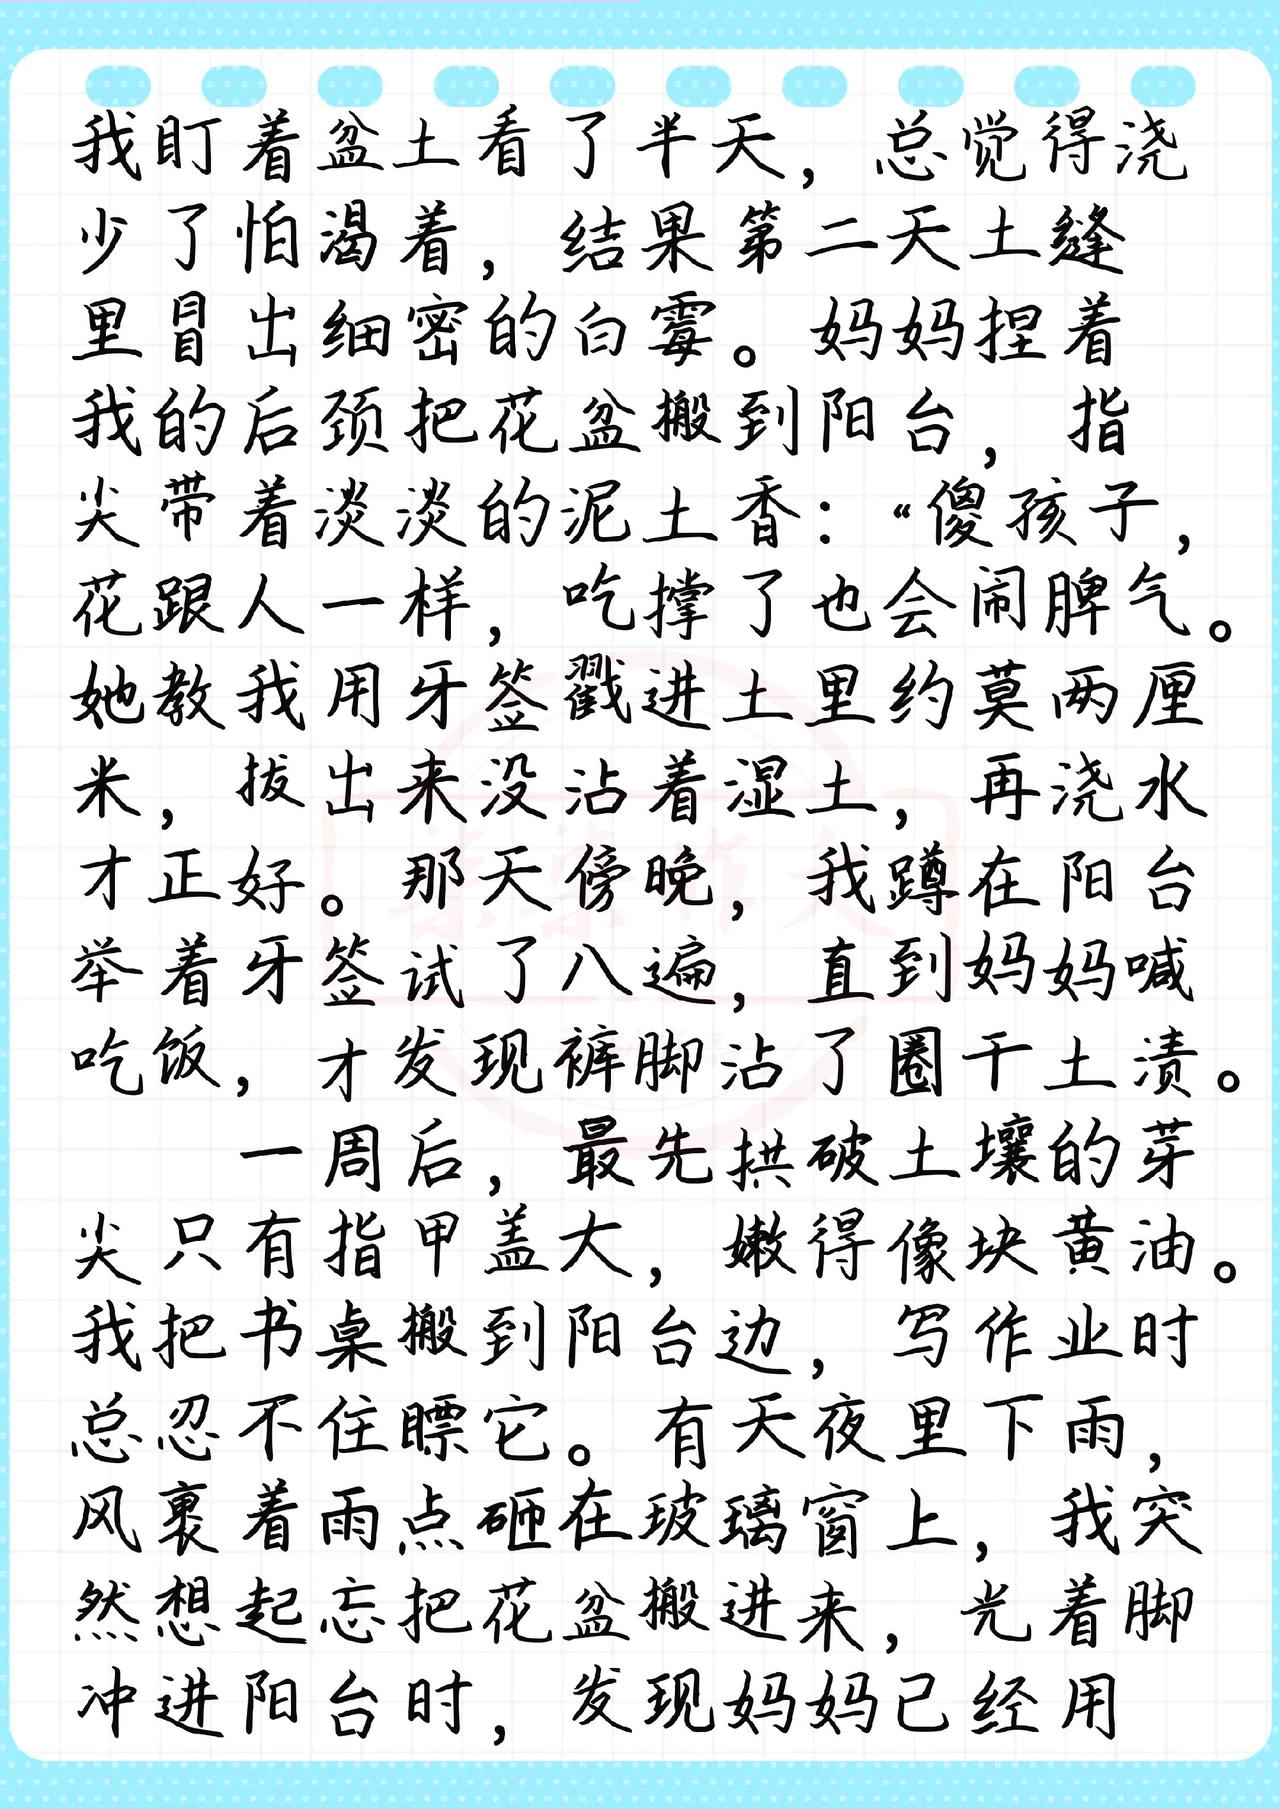 我盯着盆土看了半天，总觉得浇
少了怕渴着，结果第二天土缝
里冒出细密的白霉。妈妈捏着
我的后颈把花盆搬到阳台，指
尖带着淡淡的泥土香：“傻孩子，
花跟人一样，吃撑了也会闹脾气。
她教我用牙签戳进土里约莫两厘
米，拔出来没沾着湿土，再浇水
才正好。那天傍晚，我蹲在阳台
举着牙签试了八遍，直到妈妈喊
吃饭，才发现裤脚沾了圈干土渍。
一周后，最先拱破土壤的芽
尖只有指甲盖大，嫩得像块黄油。
我把书桌搬到阳台边，写作业时
总忍不住瞟它。有天夜里下雨，
风裹着雨点砸在玻璃窗上，我突
然想起忘把花盆搬进来，光着脚
冲进阳台时，发现妈妈已经用